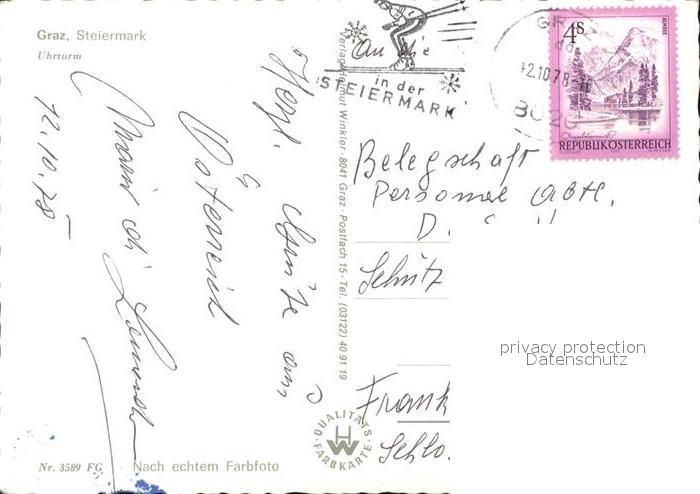 Graz, Steiermark
Uhrturm
12.10.78
Herzl. Grüße aus
Österreich
Nr. 3589 FG
Nach echtem Farbfoto
Verlag Helmut Winkler · 8041 Graz · Postfach 15 · Tel. (03122) 40 91 19
QUALITÄTS
FARBKARTE
HW
in der
STEIERMARK
GRAZ
12.10.78
8020
4S
ALMSEE
REPUBLIK ÖSTERREICH
An die
Belegschaft
Personal Abtl.
D.
Schütz
Frank
Schlo.
privacy protection
Datenschutz